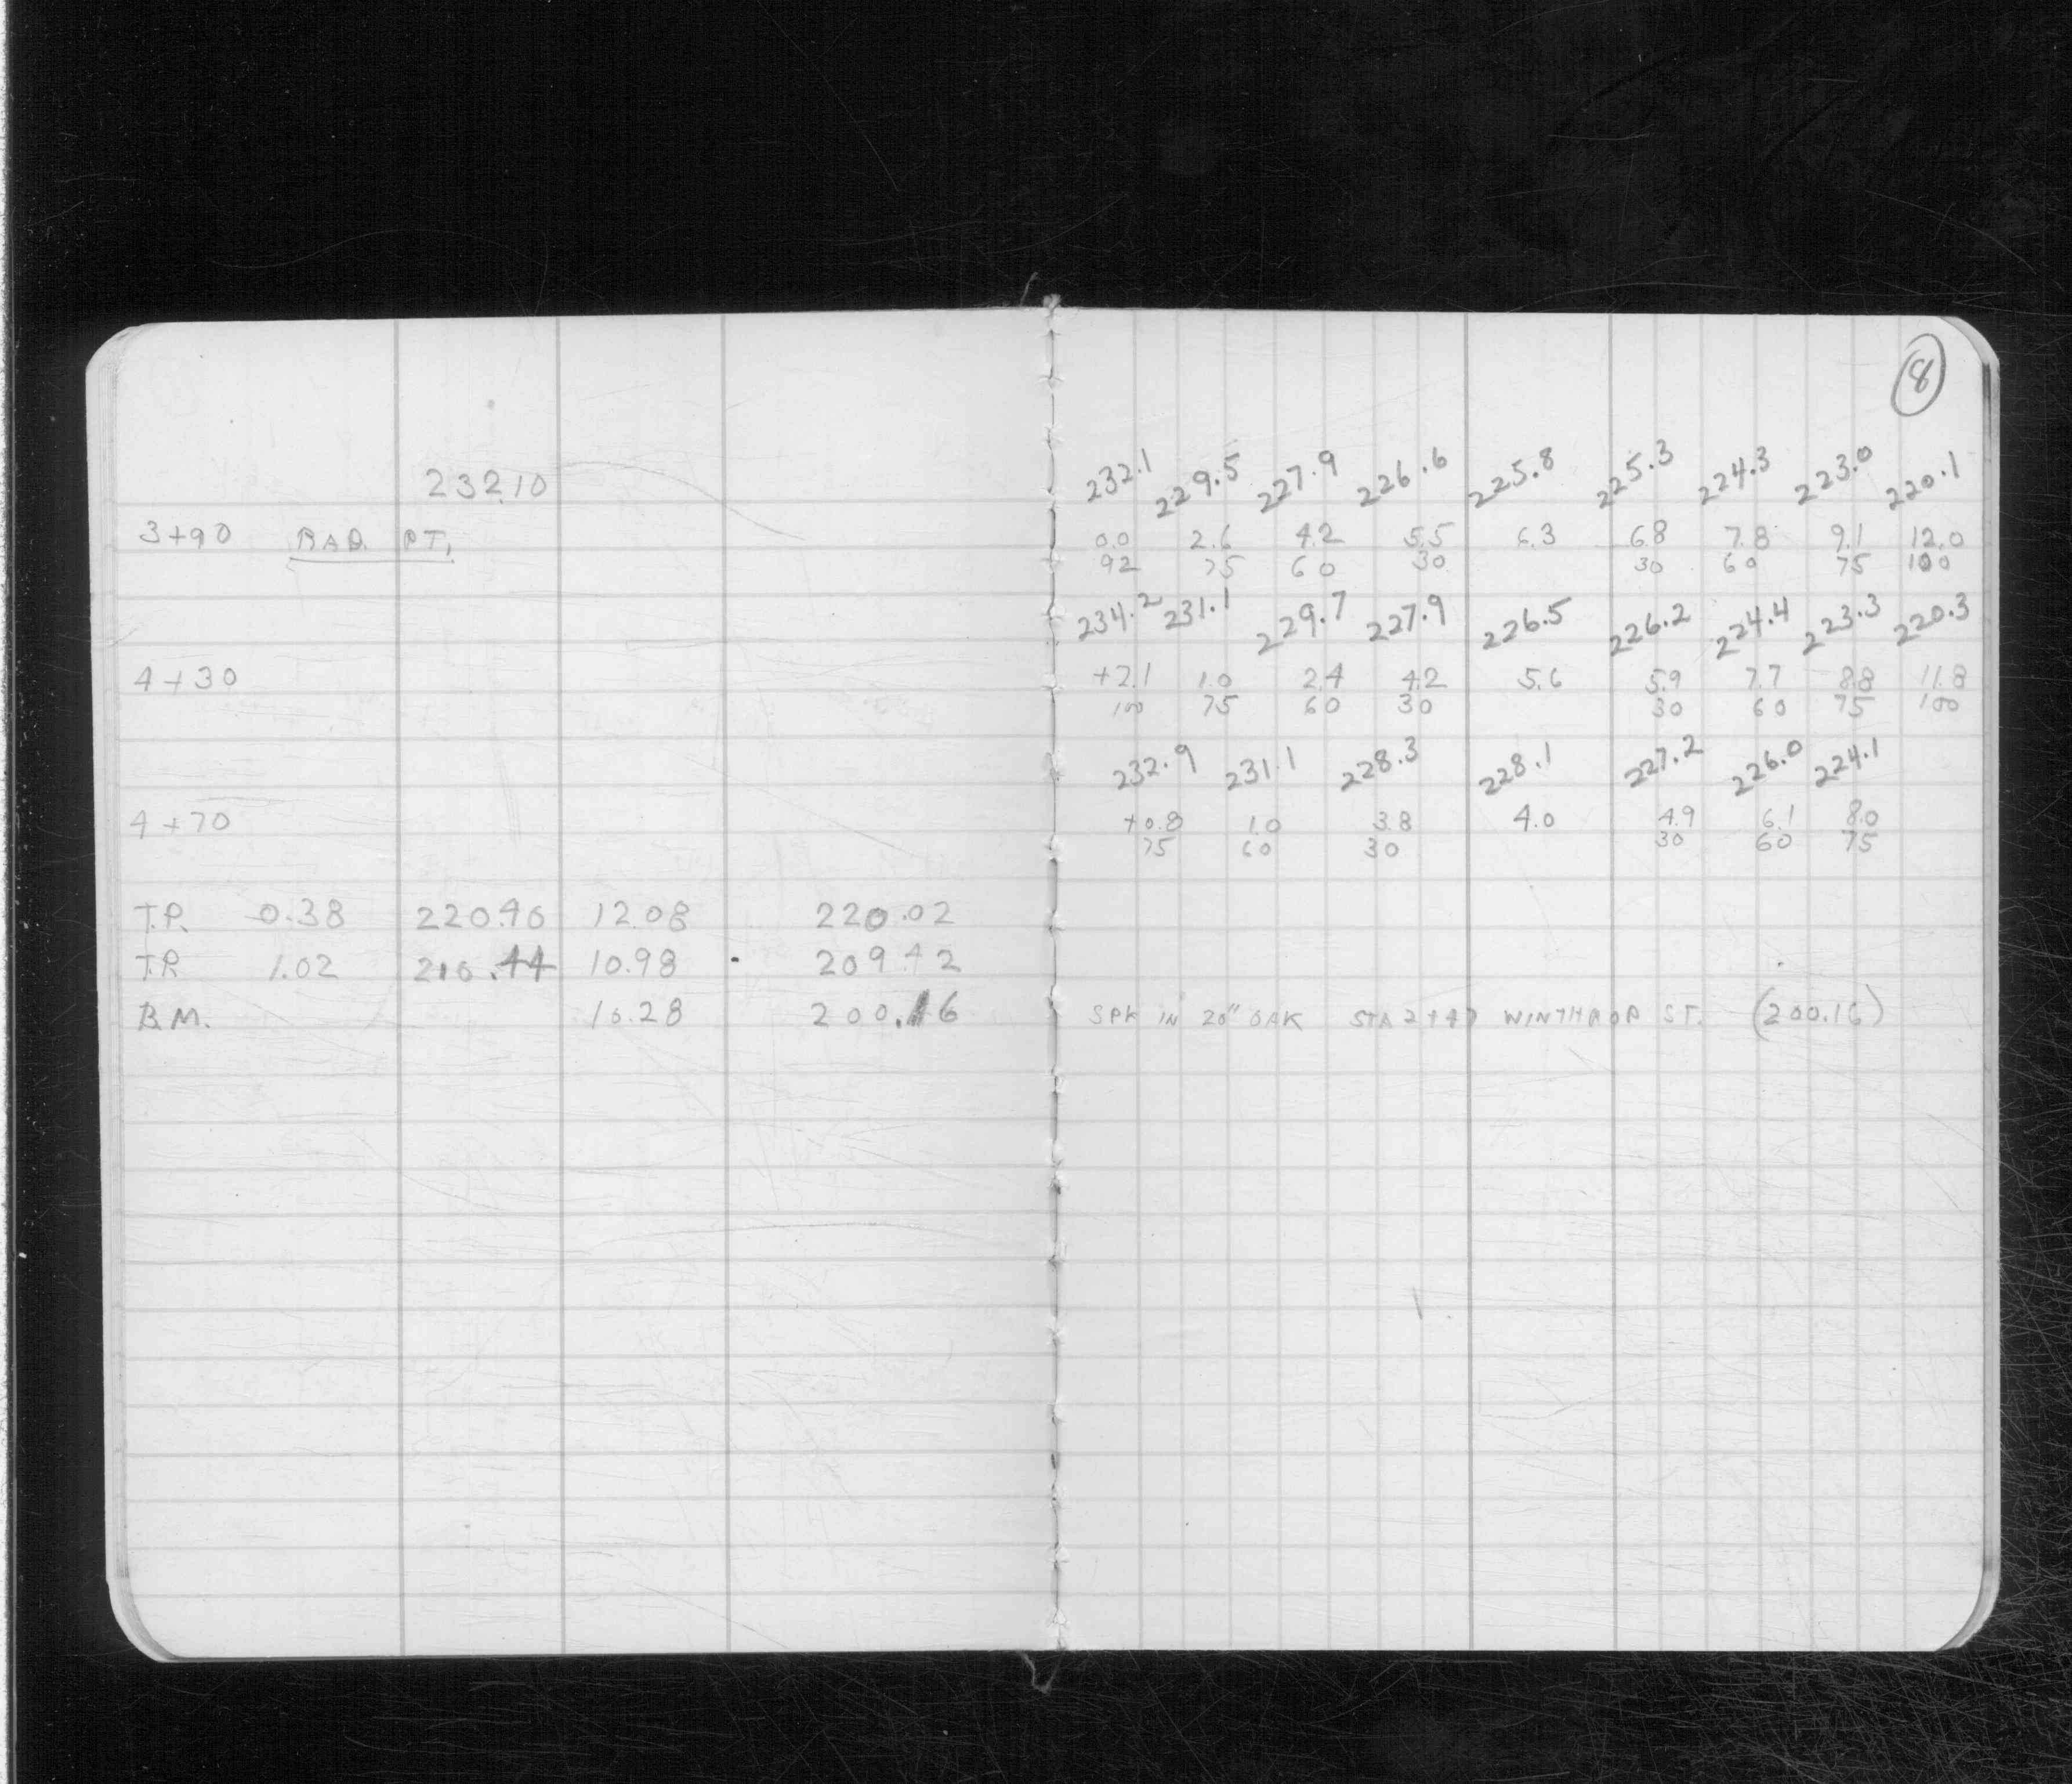 8
232.10
232.1 229.5 227.9 226.6 225.8 225.3 224.3 223.0 220.1
3+90 RAD. PT. 0.0 2.6 4.2 5.5 6.3 6.8 7.8 9.1 12.0
92 75 60 30 30 60 75 100
234.2 231.1 229.7 227.9 226.5 226.2 224.4 223.3 220.3
4+30 +2.1 1.0 2.4 4.2 5.6 5.9 7.7 8.8 11.8
100 75 60 30 30 60 75 100
232.9 231.1 228.3 228.1 227.2 226.0 224.1
4+70 +0.8 1.0 3.8 4.0 4.9 6.1 8.0
75 60 30 30 60 75
T.P. 0.38 220.40 12.08 220.02
T.P. 1.02 210.44 10.98 209.42
B.M. 10.28 200.16 SPK IN 20" OAK STA 2+47 WINTHROP ST. (200.16)